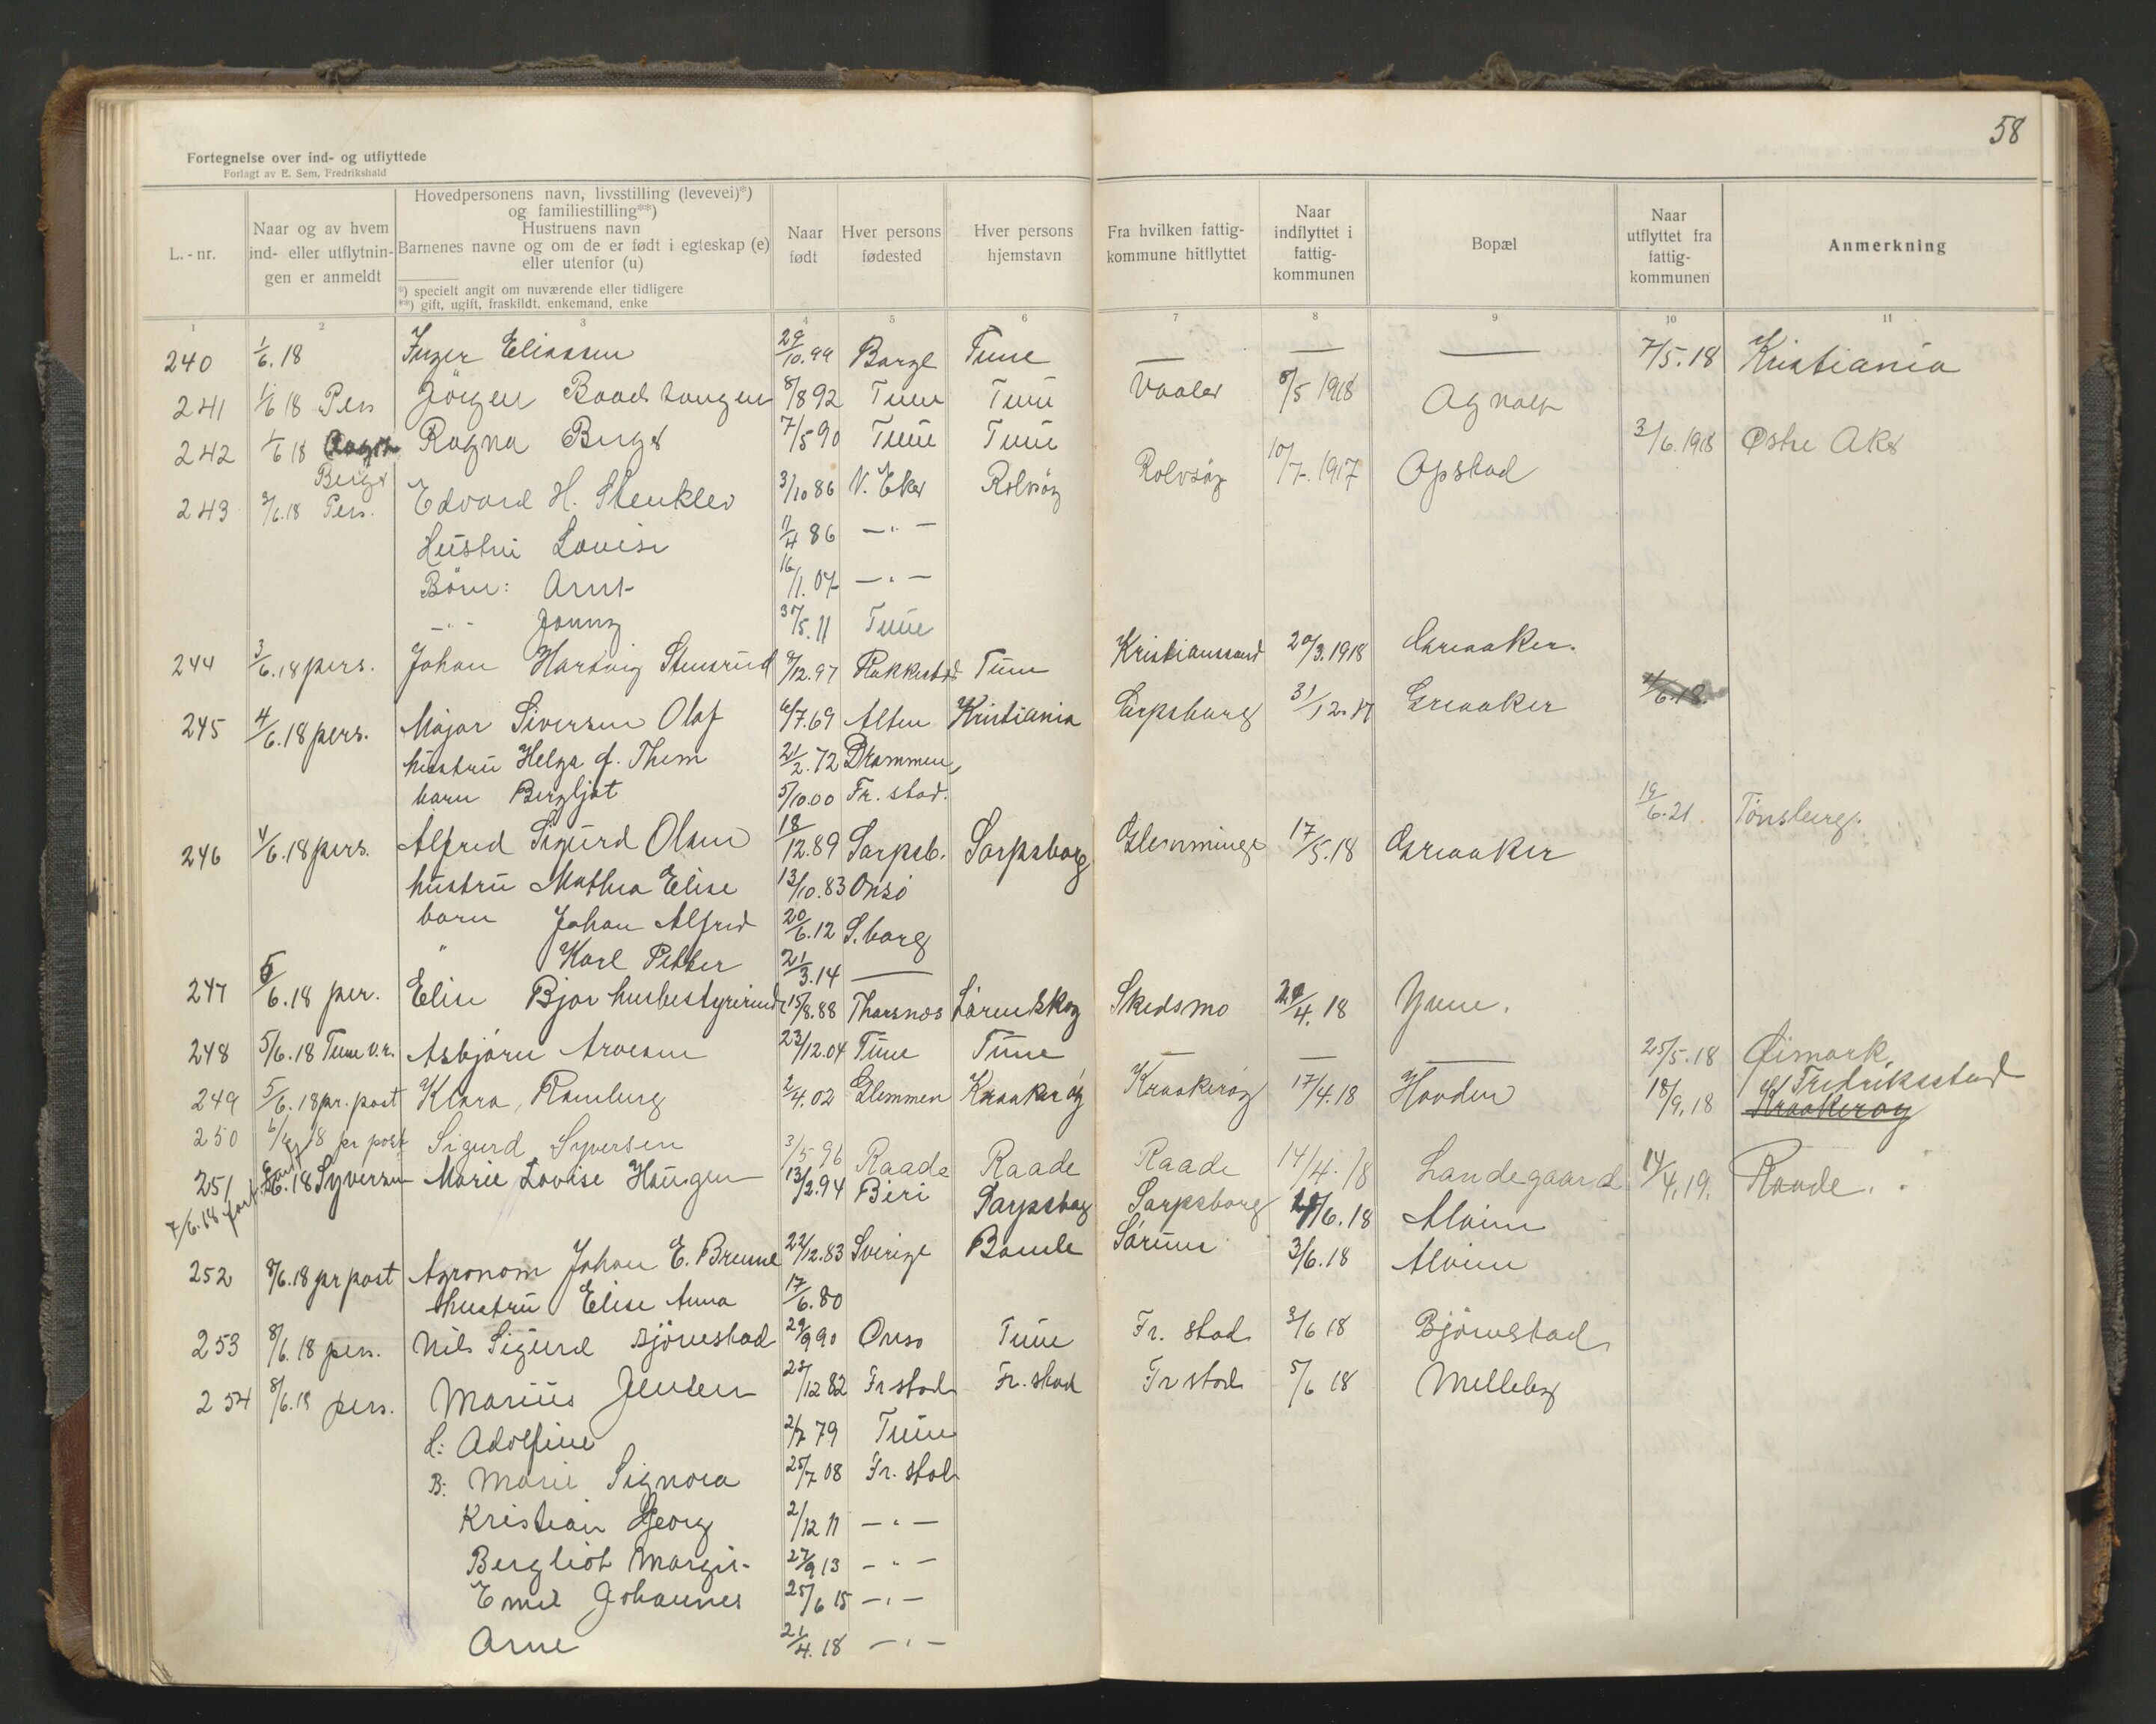 58
Fortegnelse over ind- og utflyttede
Forlagt av E. Sem, Fredrikshald
L.-nr.
Naar og av hvem ind- eller utflytningen er anmeldt
Hovedpersonens navn, livsstilling (levevei)*)
og familiestilling**)
Hustruens navn
Barnenes navne og om de er født i egteskap (e)
eller utenfor (u)
*) specielt angit om nuværende eller tidligere
**) gift, ugift, fraskildt, enkemand, enke
Naar født
Hver persons fødested
Hver persons hjemstavn
Fra hvilken fattigkommune hitflyttet
Naar indflyttet i fattigkommunen
Bopæl
Naar utflyttet fra fattigkommunen
Anmerkning
1 2 3 4 5 6 7 8 9 10 11
240 1/6.18 Inger Eliassen 29/10.99 Borge Tune — — — 7/5.18 Kristiania
241 1/6 18 Pers Jörgen Baadstangen 8/8 92 Tune Tune Vaaler 8/5 1918 Agnalt
242 1/6 18 Berger Ragna Berger 7/5 90 Tune Tune 3/6.1918 Østre Aker
243 3/6.18 Pers. Edvard H. Stenklev 3/10 86 V. Eker Rolvsöy Rolvsöy 10/7. 1917 Opstad
Hustru Lovise 11/4 86 — " —
Börn: Arnt 16/11.07 — " —
— " — Jonny 30/5.11 Tune
244 3/6.18 pers. Johan Hartvig Stensrud 9/12.97 Rakkestad Tune Kristianssand 20/3.1918 Greaaker.
245 4/6.18 pers. Major Siversen Olaf 6/7.69 Alten Kristiania Sarpsborg 31/12.17 Greaaker 4/6.18
hustru Helga f. Them 21/2.72 Drammen
barn Bergljot 5/10.00 Fr. stad.
19/6.21 Tønsberg.
246 4/6.18 pers. Alfred Sigurd Olsen 18/12.89 Sarpsb. Sarpsborg Glemminge 17/5.18 Greaaker
hustru Mathea Elise 13/10.83 Onsö
barn Johan Alfred 20/6.12 S.borg
" Karl Petter 21/3.14 —
247 5/6.18 per. Elise Bjor husbestyrerinde 15/8.88 Tharsnos Lørenskog Skedsmo 29/4.18 Yven.
248 5/6.18 Tune v.r. Asbjörn Arvesen 23/12.04 Tune Tune — — — 25/5.18 Øimark
249 5/6.18 pr. post Klara Ramberg 2/4.02 Glemmen Kraakeröy Kraakeröy 17/4.18 Hovden 18/9.18 Fredriksstad Kraakeröy
250 6/6 18 pr post Sigurd Syversen 3/5 96 Raade Raade Raade 14/4.18 Landegaard 14/4.19. Raade.
251 18 Syversen Marie Lovise Haugen 13/2.94 Biri Sarpsborg Sarpsborg /6.18 Alvim
7/6.18
252 8/6.18 pr post Agronom Johan E. Bremme 22/12.83 Sverige Bamle Sörum 3/6.18 Alvim
hustru Elise Anna 17/6.80
253 8/6.18 pers. Nils Sigurd Björnstad 29/9 90 Onsö Tune Fr. stad 3/6 18 Björnstad
254 8/6.18 pers. Marius Jensen 25/12 82 Fr stad Fr. stad Fr stad 5/6 18 Melleby
H: Adolfine 2/7 79 Tune
B: Marie Signora 25/7 08 Fr. stad
Kristian Georg 2/12 11 — " —
Bergliot Margit 27/9 13 — " —
Emil Johannes 25/6 15 — " —
Arne 21/4.18 — " —